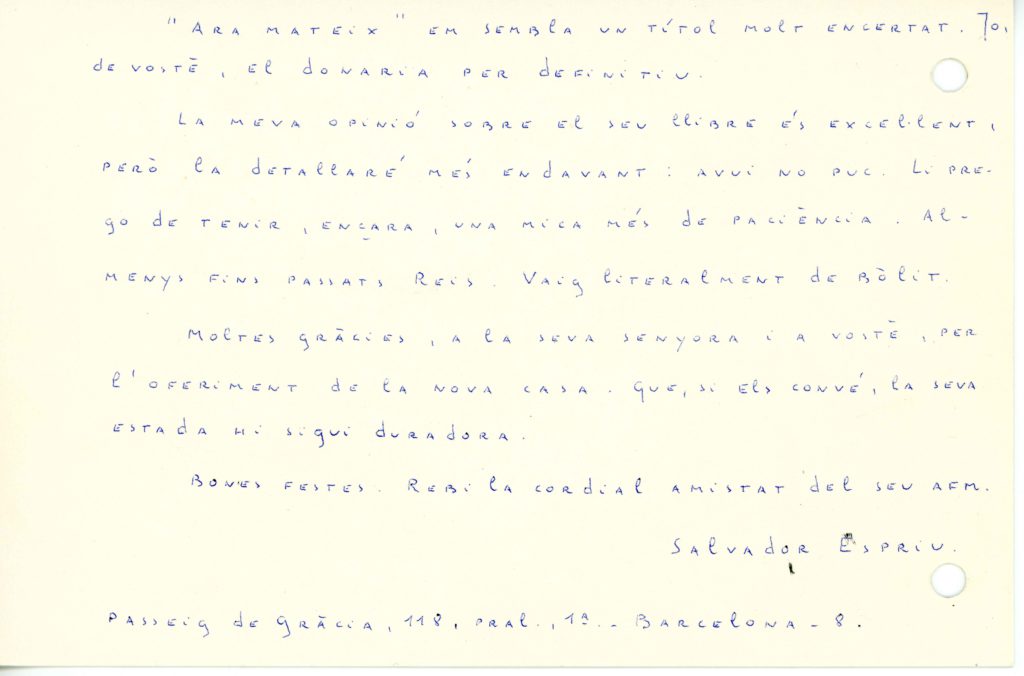 "Ara mateix" em sembla un títol molt encertat. Jo,
de vostè, el donaria per definitiu.
La meva opinió sobre el seu llibre és excel·lent,
però la detallaré més endavant: avui no puc. Li pre-
go de tenir, ençara, una mica més de paciència. Al-
menys fins passats Reis. Vaig literalment de bòlit.
Moltes gràcies, a la seva senyora i a vostè, per
l'oferiment de la nova casa. Que, si els convé, la seva
estada hi sigui duradora.
Bones festes. Rebi la cordial amistat del seu afm.
Salvador Espriu.
Passeig de Gràcia, 118, pral., 1ª. - Barcelona - 8.